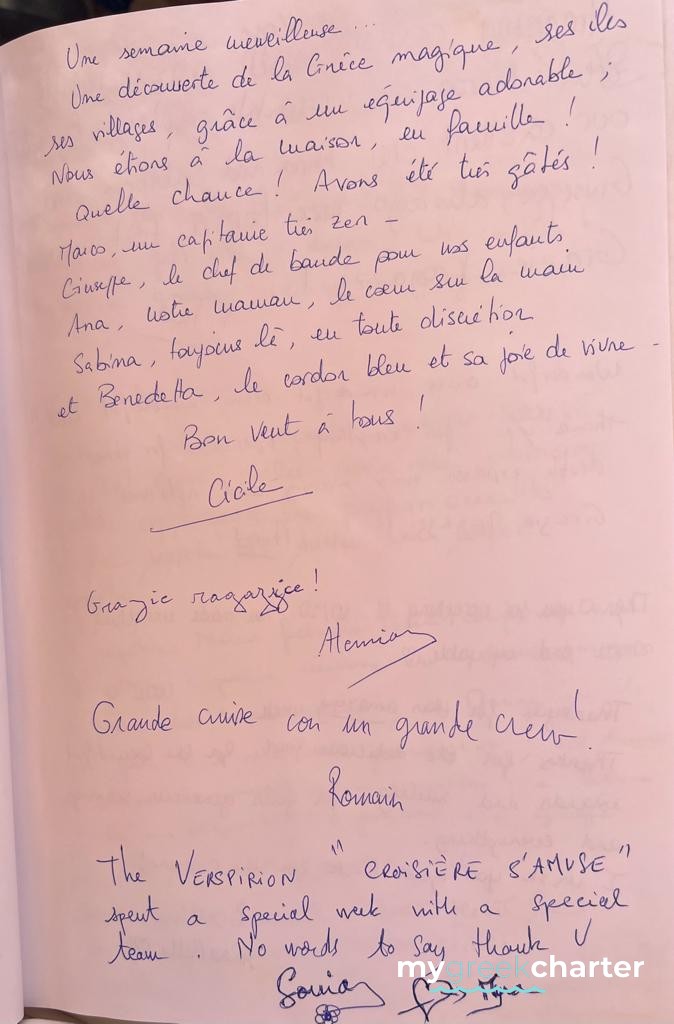 Une semaine merveilleuse...
Une découverte de la Grèce magique, ses iles
ses villages, grâce à un équipage adorable ;
Nous étions à la maison, en famille !
Quelle chance ! Avons été très gâtés !
Marco, un capitaine très zen -
Giuseppe, le chef de bande pour nos enfants
Ana, notre maman, le cœur sur la main
Sabina, toujours là, en toute discrétion
et Benedetta, le cordon bleu et sa joie de vivre -
Bon vent à tous !
Cécile
Grazie ragazzi !
Grande cruise con un grande crew !
Romain
The VERSPIRION "CROISIÈRE S'AMUSE"
spent a special week with a special
team. No words to say thank U
mygreekcharter
Sonia